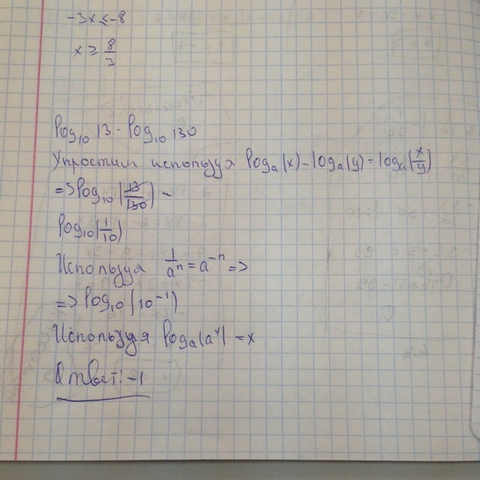 -3x ≤ -8
x ≥ 8/3
log₁₀ 13 - log₁₀ 130
Упростим используя logₐ(x) - logₐ(y) = logₐ(x/y)
=> log₁₀ (13/130) -
log₁₀(1/10)
Используя 1/aⁿ = a⁻ⁿ =>
=> log₁₀ (10⁻¹)
Используя logₐ(aˣ) = x
Ответ: -1